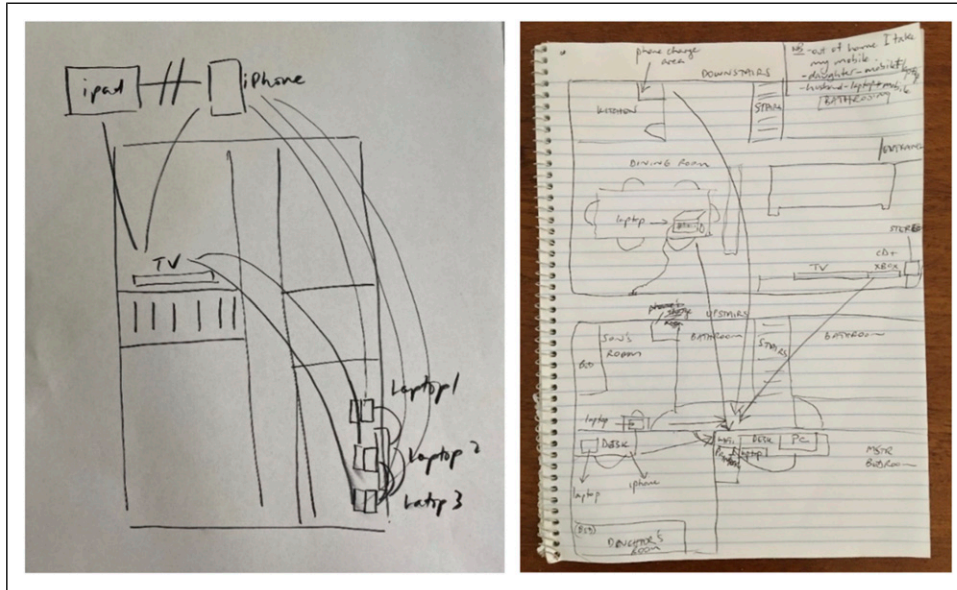 ipad
iPhone
TV
Laptop1
Laptop 2
Latop 3
phone charge
area
DOWNSTAIRS
NB -out of home I take
my mobile
-daughter-mobile+
-husband-laptop+mobile
BATHROOM
KITCHEN
STAIRS
ENTRANCE
DINING ROOM
laptop
STEREO
CD+
XBOX
TV
UPSTAIRS
SON'S
ROOM
BED
BATHROOM
STAIRS
BATHROOM
laptop
DESK
DESK
PC
laptop
MSTR
BEDROOM
laptop
iphone
BED
DAUGHTER'S
ROOM